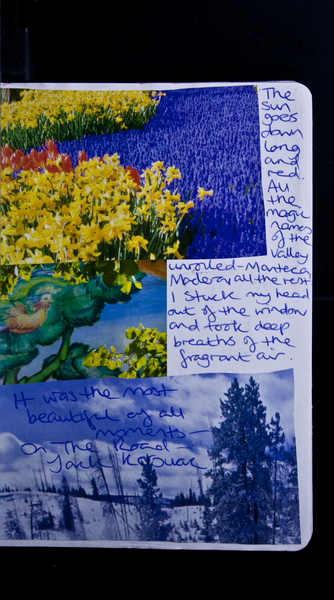 The
sun
goes
down
long
and
red.
All
the
magic
names
of the
valley
unrolled-Manteca
Madera, all the rest.
I stuck my head
out of the window
and took deep
breaths of the
fragrant air.
It was the most
beautiful of all
moments-
On The Road
Jack Kerouac